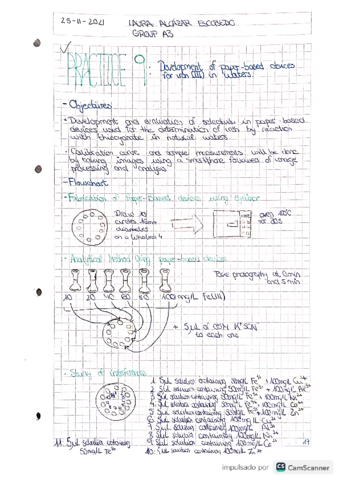 25-11-2021
LAURA ALCÁZAR ESCOBEDO
GROUP A3
PRACTICE 9:
Development of paper-based devices
for iron (III) in waters.
- Objectives
• Development and evaluation of selectivity in paper-based
devices used for the determination of iron by reaction
with thiocyanate in natural waters
• Calibration curve and sample measurements will be done
by taking images using a smartphone followed of image
processing and analysis
- Flowchart
• Fabrication of paper-based devices using
Draw 10
circles
on a Whatman 4
oven
• Analytical Method using paper-based devices
10 20 40 60 80 100 mg/L Fe(III)
Take photography at 0 min
and 5 min
+ 5 µL of KSCN
to each one
• Study of interferences
1. 5 µL solution containing 50mg/L Fe³⁺ + 100mg/L Cu²⁺
2. 5 µL solution containing 50mg/L Fe³⁺ + 100 mg/L
3. 5 µL solution containing 50mg/L Fe³⁺ + 100mg/L
4. 5 µL solution containing 50mg/L Fe³⁺ + 100mg/L
5. 5 µL solution containing 50mg/L Fe³⁺ + 100mg/L
6. 5 µL solution containing 100mg/L
7. 5 µL solution containing 100mg/L
8. 5 µL solution containing 100mg/L
9. 5 µL solution containing 100mg/L
10. 5 µL solution containing 100mg/L
11. 5 µL solution containing
50mg/L Fe³⁺
17
impulsado por CS CamScanner